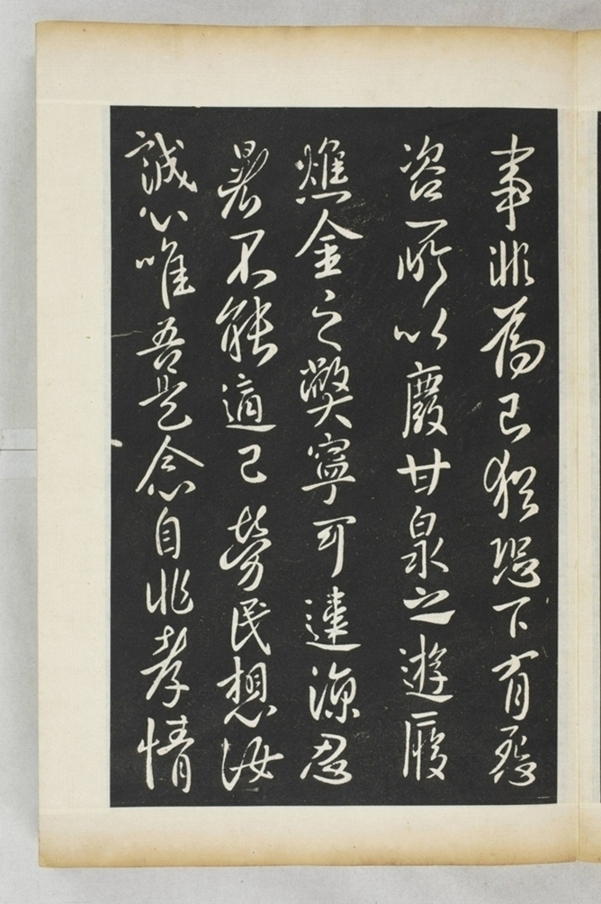 事非為己猶恐下有怨
咨所以廢甘泉之遊履
燋金之弊寧可違涼忍
暑不能適己勞民想汝
誠心唯吾是念自非孝情